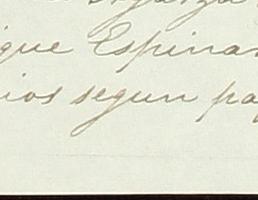 ique Espinar
ios segun pa